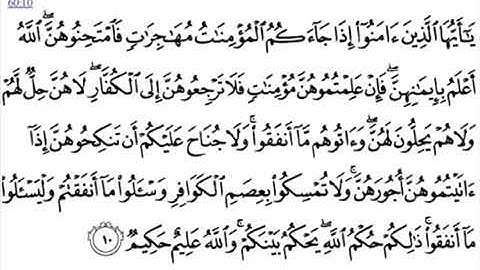 60:10
يَٰٓأَيُّهَا ٱلَّذِينَ ءَامَنُوٓا۟ إِذَا جَآءَكُمُ ٱلْمُؤْمِنَٰتُ مُهَٰجِرَٰتٍ فَٱمْتَحِنُوهُنَّ ۖ ٱللَّهُ
أَعْلَمُ بِإِيمَٰنِهِنَّ ۖ فَإِنْ عَلِمْتُمُوهُنَّ مُؤْمِنَٰتٍ فَلَا تَرْجِعُوهُنَّ إِلَى ٱلْكُفَّارِ ۖ لَا هُنَّ حِلٌّ لَّهُمْ
وَلَا هُمْ يَحِلُّونَ لَهُنَّ ۖ وَءَاتُوهُم مَّآ أَنفَقُوا۟ ۚ وَلَا جُنَاحَ عَلَيْكُمْ أَن تَنكِحُوهُنَّ إِذَآ
ءَاتَيْتُمُوهُنَّ أُجُورَهُنَّ ۚ وَلَا تُمْسِكُوا۟ بِعِصَمِ ٱلْكَوَافِرِ وَسْـَٔلُوا۟ مَآ أَنفَقْتُمْ وَلْيَسْـَٔلُوا۟
مَآ أَنفَقُوا۟ ۚ ذَٰلِكُمْ حُكْمُ ٱللَّهِ ۖ يَحْكُمُ بَيْنَكُمْ ۚ وَٱللَّهُ عَلِيمٌ حَكِيمٌ ١٠